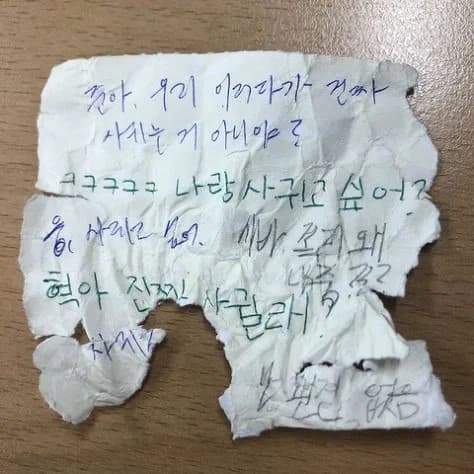 준아, 우리 이러다가 진짜
사귀는 거 아니야?
ㅋㅋㅋㅋㅋ 나랑사귀고 싶어?
응, 사귀고 싶어. 시바 쪽지 왜
나를 주고
혁아 진짜 사귈래?
사귀자
난 편견 없음